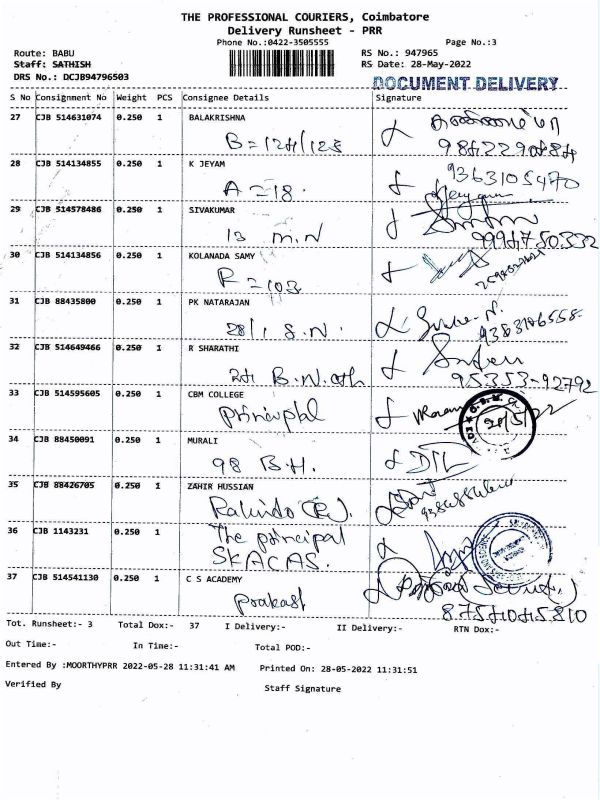 THE PROFESSIONAL COURIERS, Coimbatore
Delivery Runsheet - PRR
Phone No.:0422-3505555 Page No.:3
Route: BABU RS No.: 947965
Staff: SATHISH RS Date: 28-May-2022
DRS No.: DCJB94796503
DOCUMENT DELIVERY
S No Consignment No Weight PCS Consignee Details Signature
27 CJB 514631074 0.250 1 BALAKRISHNA
28 CJB 514134855 0.250 1 K JEYAM
9363105470
A = 18.
29 CJB 514578486 0.250 1 SIVAKUMAR
13 M.N 9994750332
30 CJB 514134856 0.250 1 KOLANADA SAMY
R = 103
31 CJB 88435800 0.250 1 PK NATARAJAN
28/1 S.N.
32 CJB 514649466 0.250 1 R SHARATHI
B.N.
95353-92792
33 CJB 514595605 0.250 1 CBM COLLEGE
28/5/22
34 CJB 88450091 0.250 1 MURALI
98 B.H.
35 CJB 88426705 0.250 1 ZAHIR HUSSIAN
36 CJB 1143231 0.250 1 The principal
SKACAS.
37 CJB 514541130 0.250 1 C S ACADEMY
Prakash
8754045810
Tot. Runsheet:- 3 Total Dox:- 37 I Delivery:- II Delivery:- RTN Dox:-
Out Time:- In Time:- Total POD:-
Entered By :MOORTHYPRR 2022-05-28 11:31:41 AM Printed On: 28-05-2022 11:31:51
Verified By Staff Signature